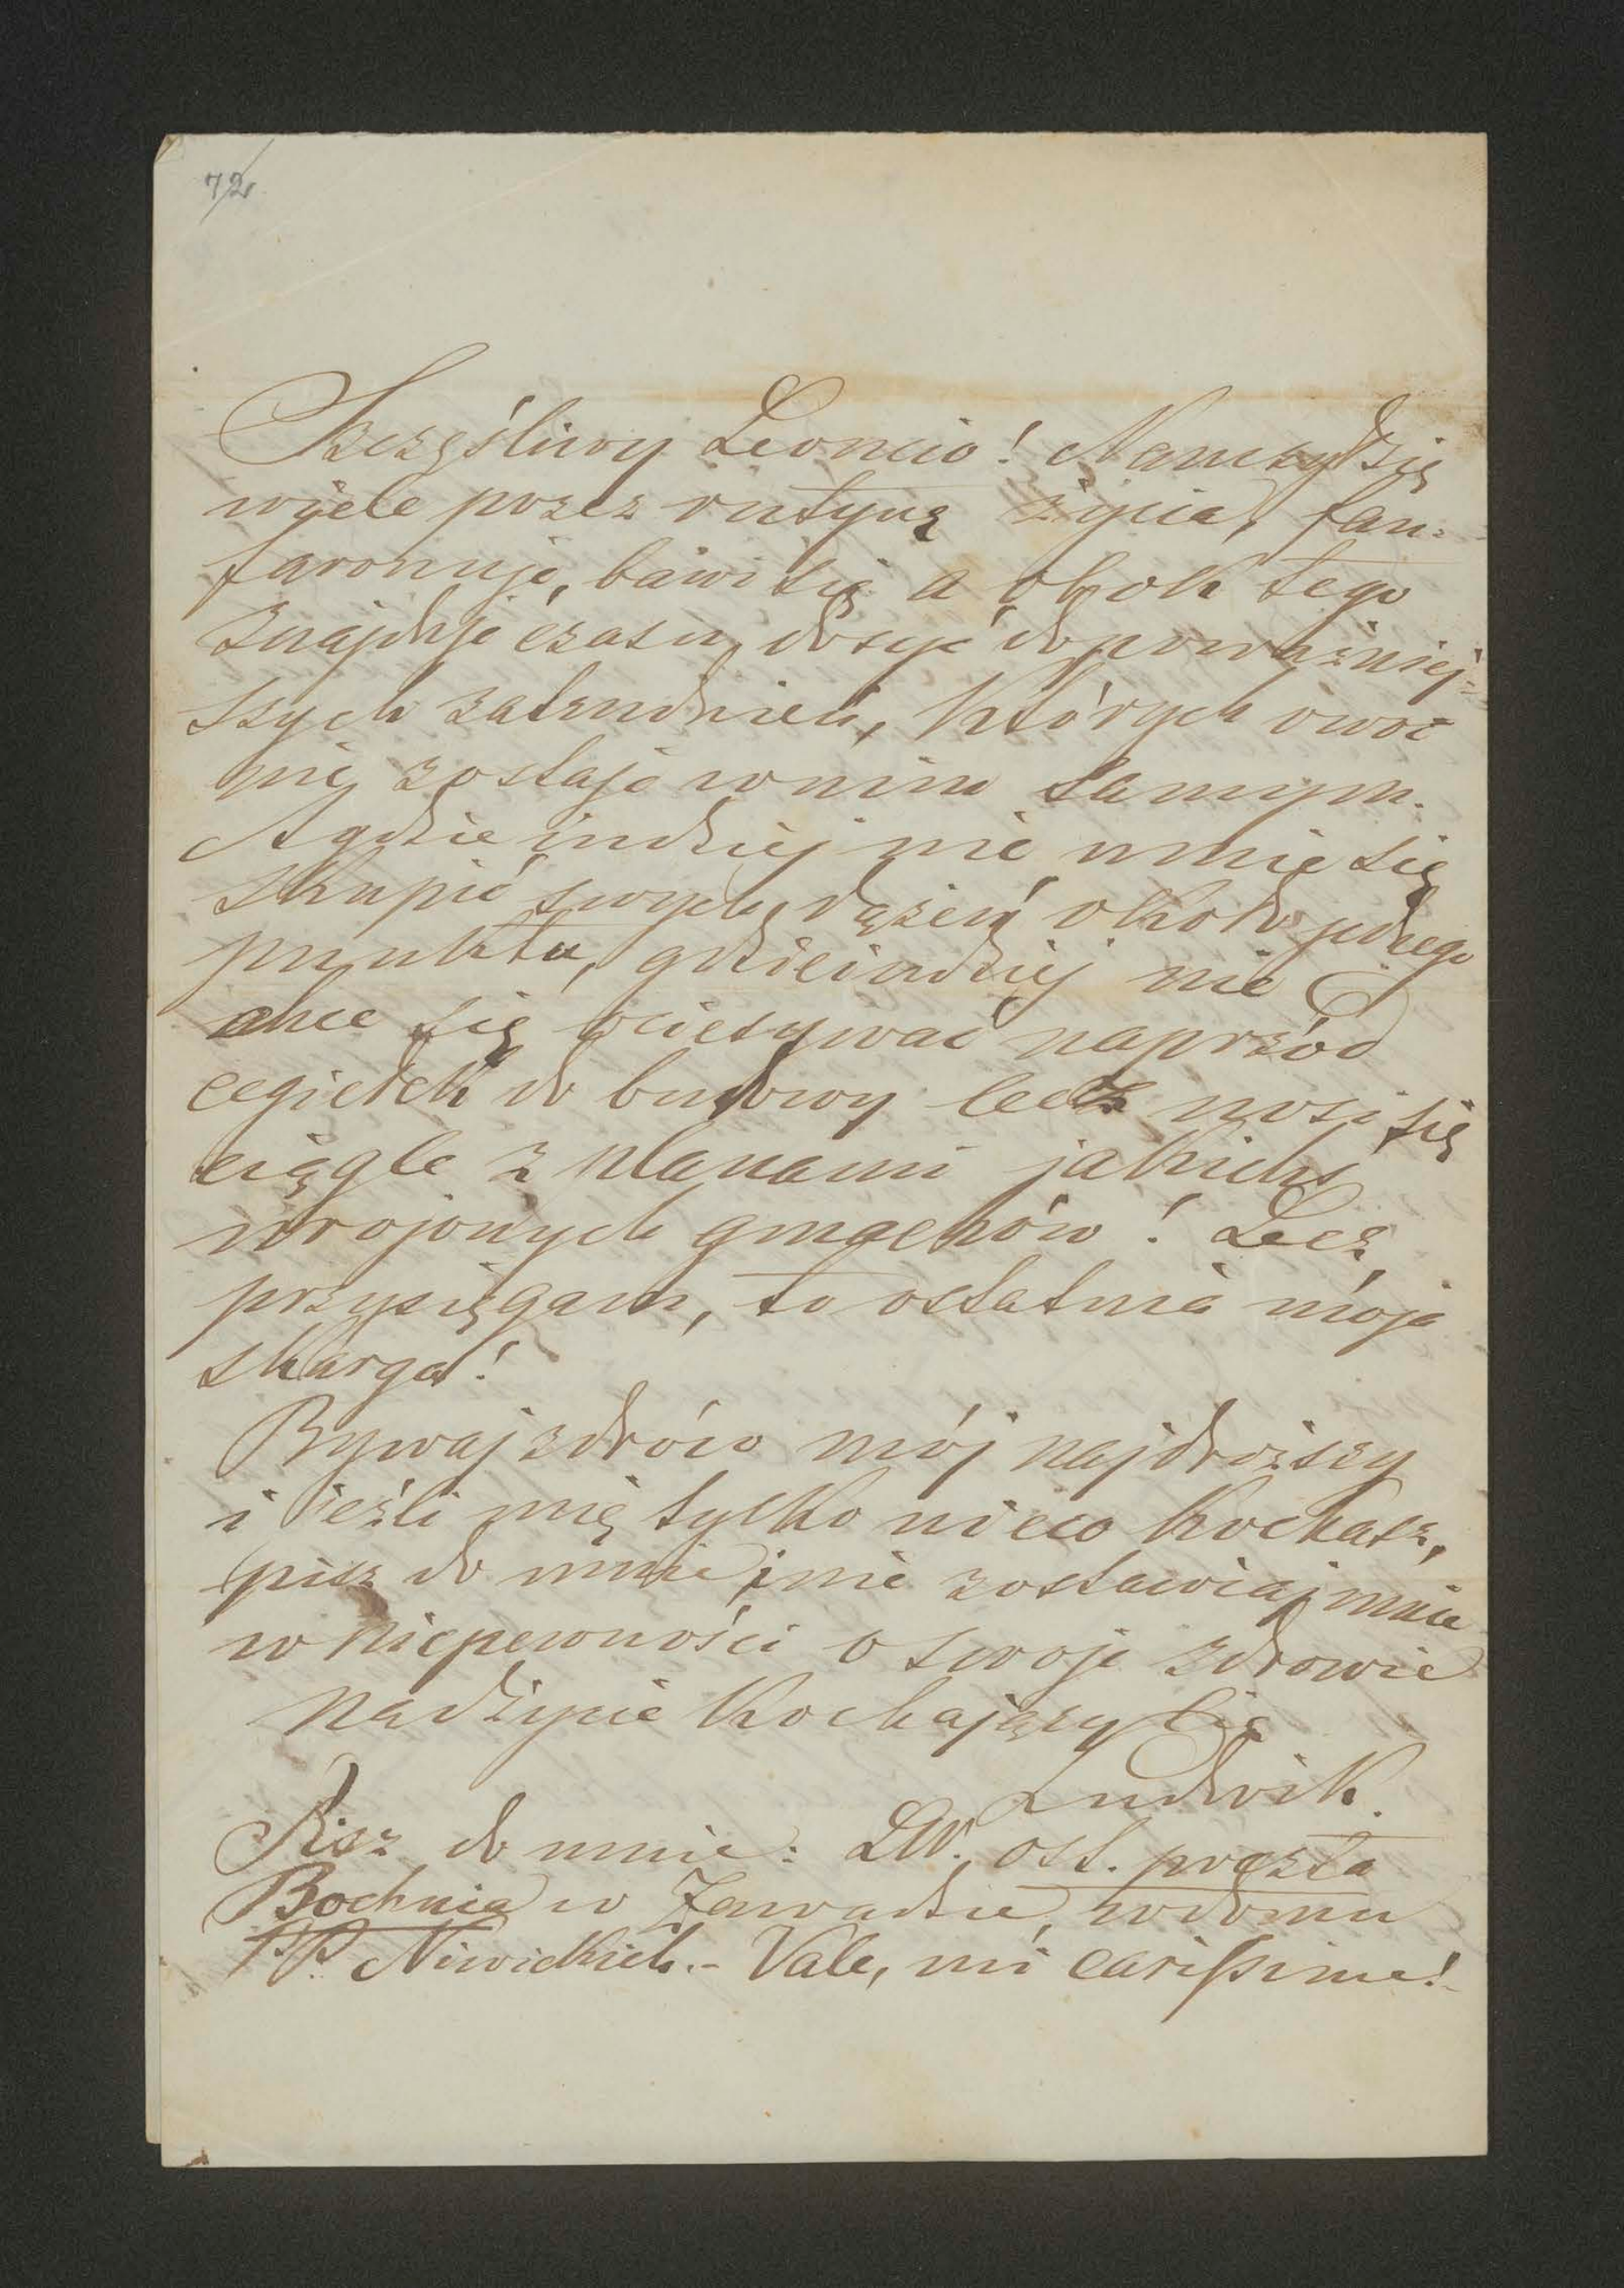 72
Szczęśliwy Leoncio! Nauczył się
wiele przez rutynę życia, fan-
faronuje, bawi się a obok tego
znajduje czasu dosyć do poważniej-
szych zatrudnień, których owoc
nie zostaje w nim samym.
A gdzieindziej nie umie się
skupić swych dążeń około jednego
punktu, gdzieindziej nie
chce się naprzód
cegiełek do budowy lecz nosi się
ciągle z planami jakichś
urojonych gmachów! Lecz
przysięgam, to ostatnia moja
skarga!
Bywaj zdrów mój najdroższy
i jeśli mię tylko nieco kochasz,
pisz do mnie i nie zostawiaj mnie
w niepewności o twoje zdrowie
nad życie kochający cię
Ludwik.
Pisz do mnie: LW. ost. poczta
Bochnia w Zawadzie, w domu
PP. Niwickich. - Vale, mi carissime!